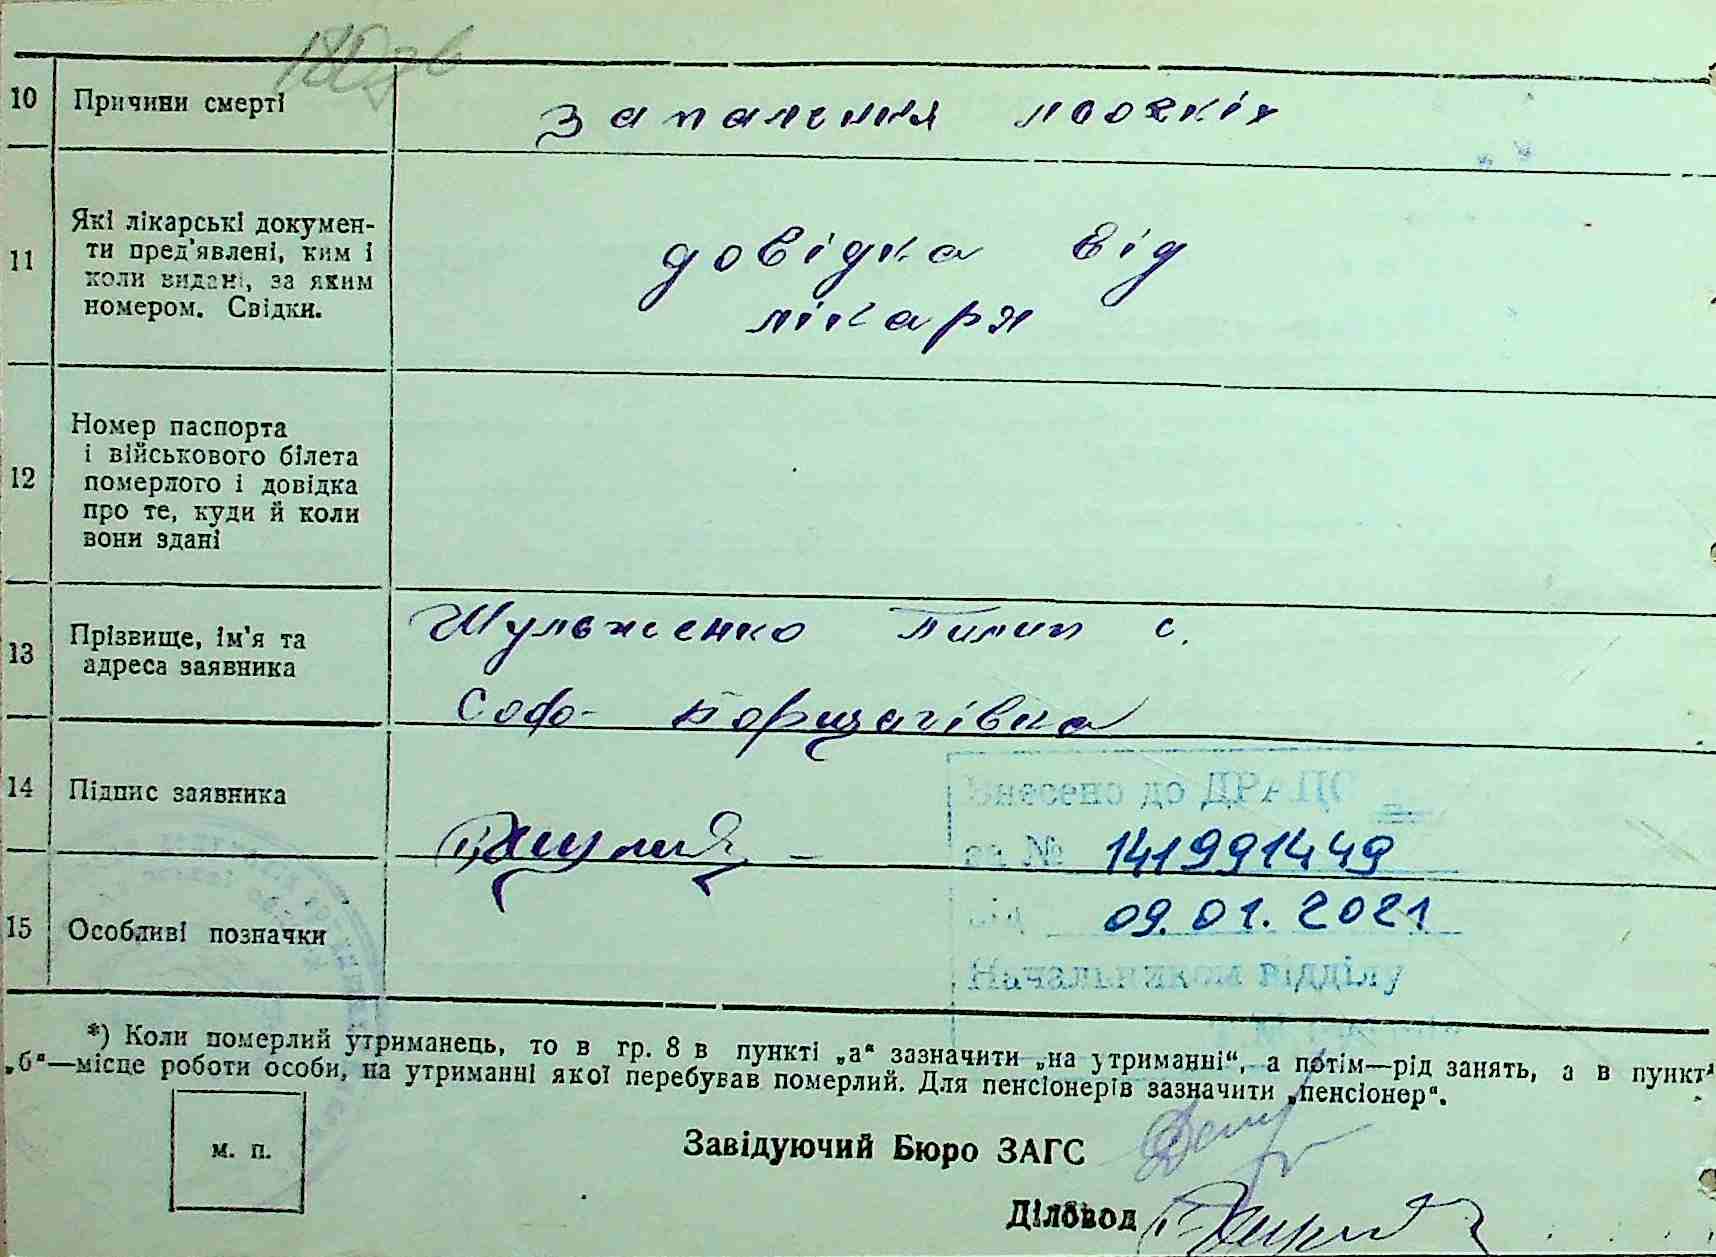 10 Причини смерті запалення
11 Які лікарські докумен-
ти пред'явлені, ким і
коли видані, за яким
номером. Свідки.
довідка від
лікаря
12 Номер паспорта
і військового білета
померлого і довідка
про те, куди й коли
вони здані
13 Прізвище, ім'я та
адреса заявника
Шульженко Пилип с.
Софо- Борщагівка
14 Підпис заявника
15 Особливі позначки
Внесено до ДРАЦС
за № 141991449
від 09.01.2021
Начальником відділу
*) Коли померлий утриманець, то в гр. 8 в пункті „а“ зазначити „на утриманні“, а потім—рід занять, а в пункті
„б“—місце роботи особи, на утриманні якої перебував померлий. Для пенсіонерів зазначити „пенсіонер“.
м. п.
Завідуючий Бюро ЗАГС
Діловод